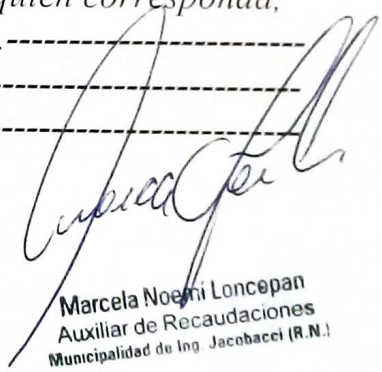 quien corresponda,
Marcela Noemí Loncopan
Auxiliar de Recaudaciones
Municipalidad de Ing. Jacobacci (R.N.)